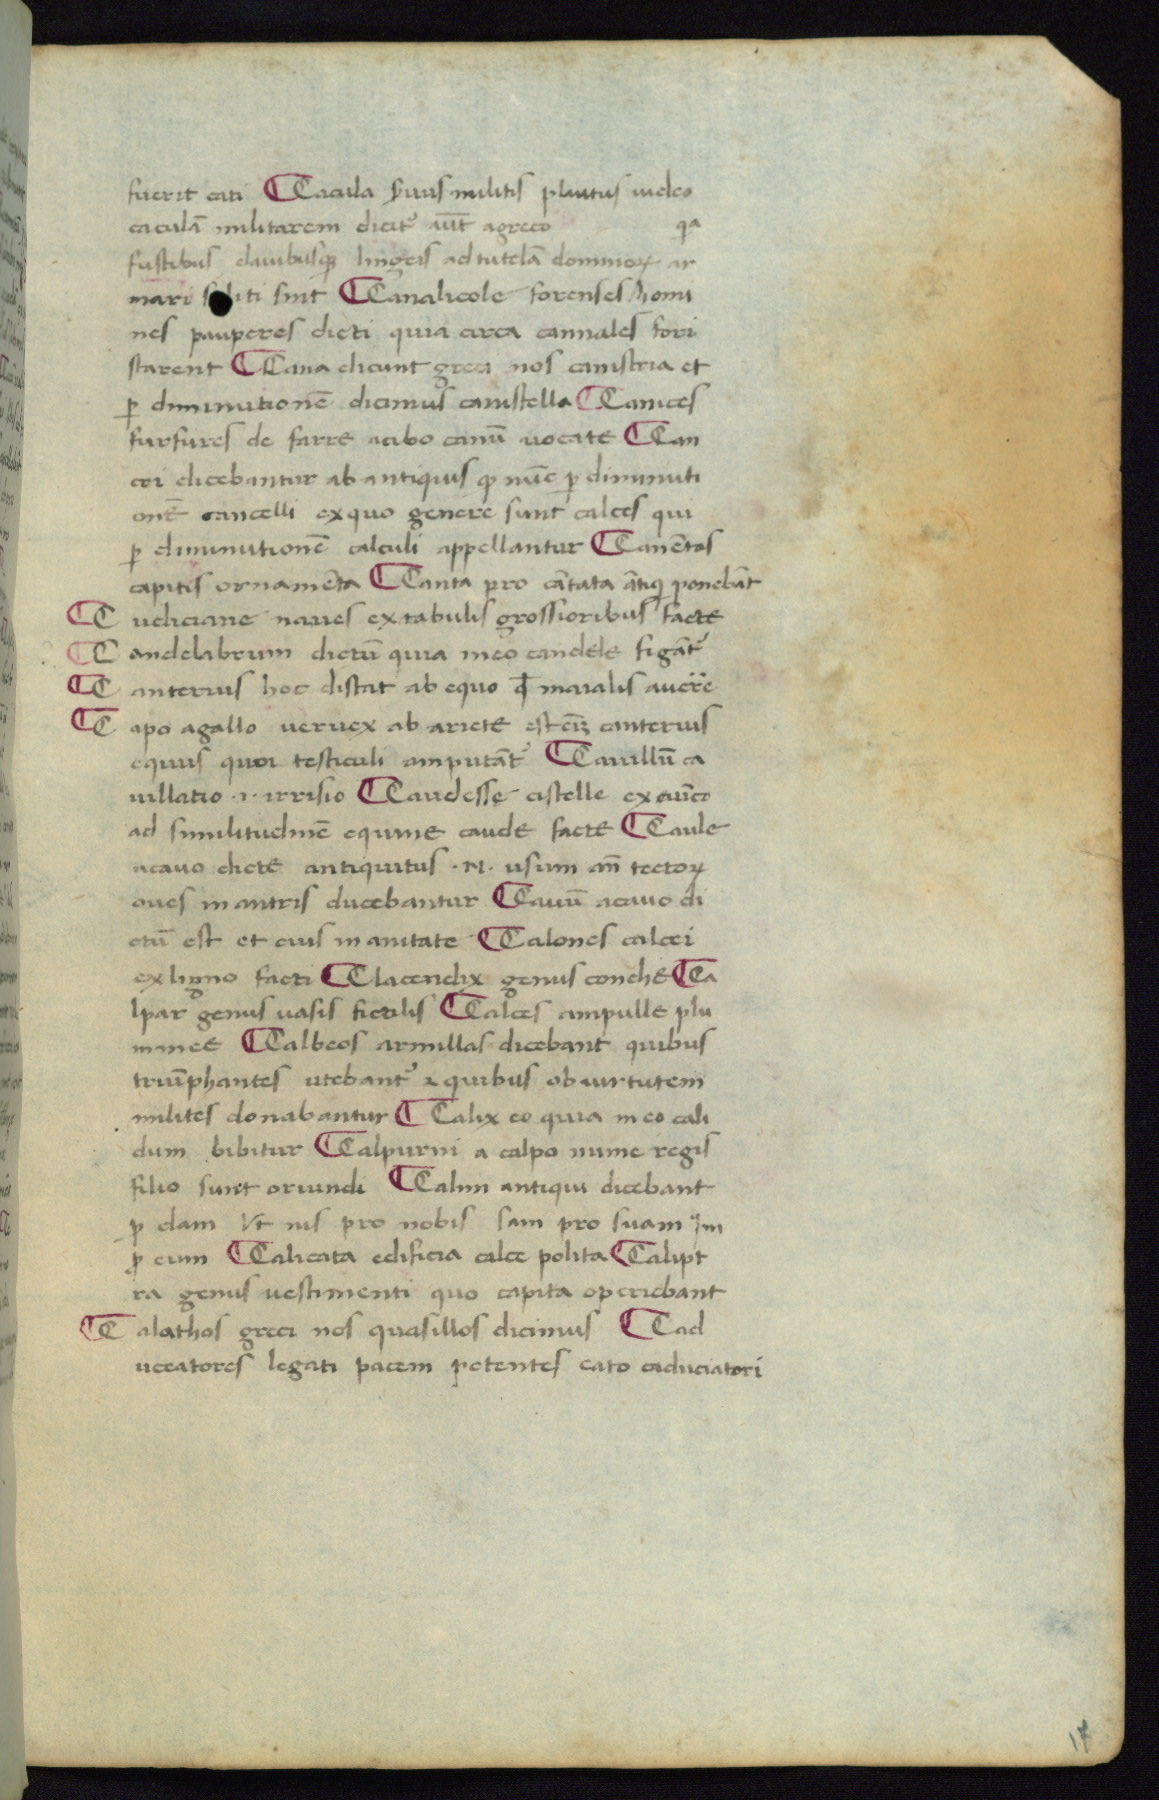 fuerit cati ¶ Cacula Seruus militis plautus uideo
caculā militarem dicit᷑ aūt agreco qa
fustibus clauibusqꝫ lingeis ad tutelā dominoꝝ ar
mari soliti sint ¶ Canalicole forenses homi
nes pauperes dicti quia circa cannales fori
starent ¶ Cana dicunt greci nos canistria et
ꝑ diminutionē dicimus canistella ¶ Canices
furfures de farre acibo canū uocate ¶ Can
cri dicebantur ab antiquis ꝗ nūc ꝑ diminuti
onē cancelli ex quo genere sunt calces qui
ꝑ diminutionē calculi appellantur ¶ Canētas
capitis ornamēta ¶ Canta pro cātata ātiqͥ ponebāt
¶ C udiciane naues ex tabulis grossioribus facte
¶ C andelabrum dictū quia in eo candele figāt᷑
¶ C anterius hoc distat ab equo qđ maialis auerre
¶ C apo agallo ueruex ab ariete est eīꝫ canterius
equus quoi testiculi amputāt᷑ ¶ Cauillū ca
uillatio ·i· irrisio ¶ Caudesse cistelle ex iūco
ad similitudinē equine caude facte ¶ Caule
acauo dicte antiquitus ·N· usum añ tectoꝝ
oues in antris ducebantur ¶ Cauū acauo di
ctū est et cius inanitate ¶ Calones calcei
ex ligno facti ¶ Clacendix genus conche ¶ Ca
lpar genus uasis fictilis ¶ Calces ampulle plu
mnee ¶ Calbeos armillas dicebant quibus
triūphantes utebant᷑ ⁊ quibus ob uirtutem
milites donabantur ¶ Calix eo quia in eo cali
dum bibitur ¶ Calpurni a calpo nume regis
filio sunt oriundi ¶ Calim antiqui dicebant
ꝑ clam Vt nis pro nobis sam pro suam im
ꝓ eum ¶ Calicata edificia calce polita ¶ Calipt
ra genus uestimenti quo capita operiebant
¶ C alathos greci nos quasillos dicimus ¶ Cad
uceatores legati pacem petentes cato caduciatori
17